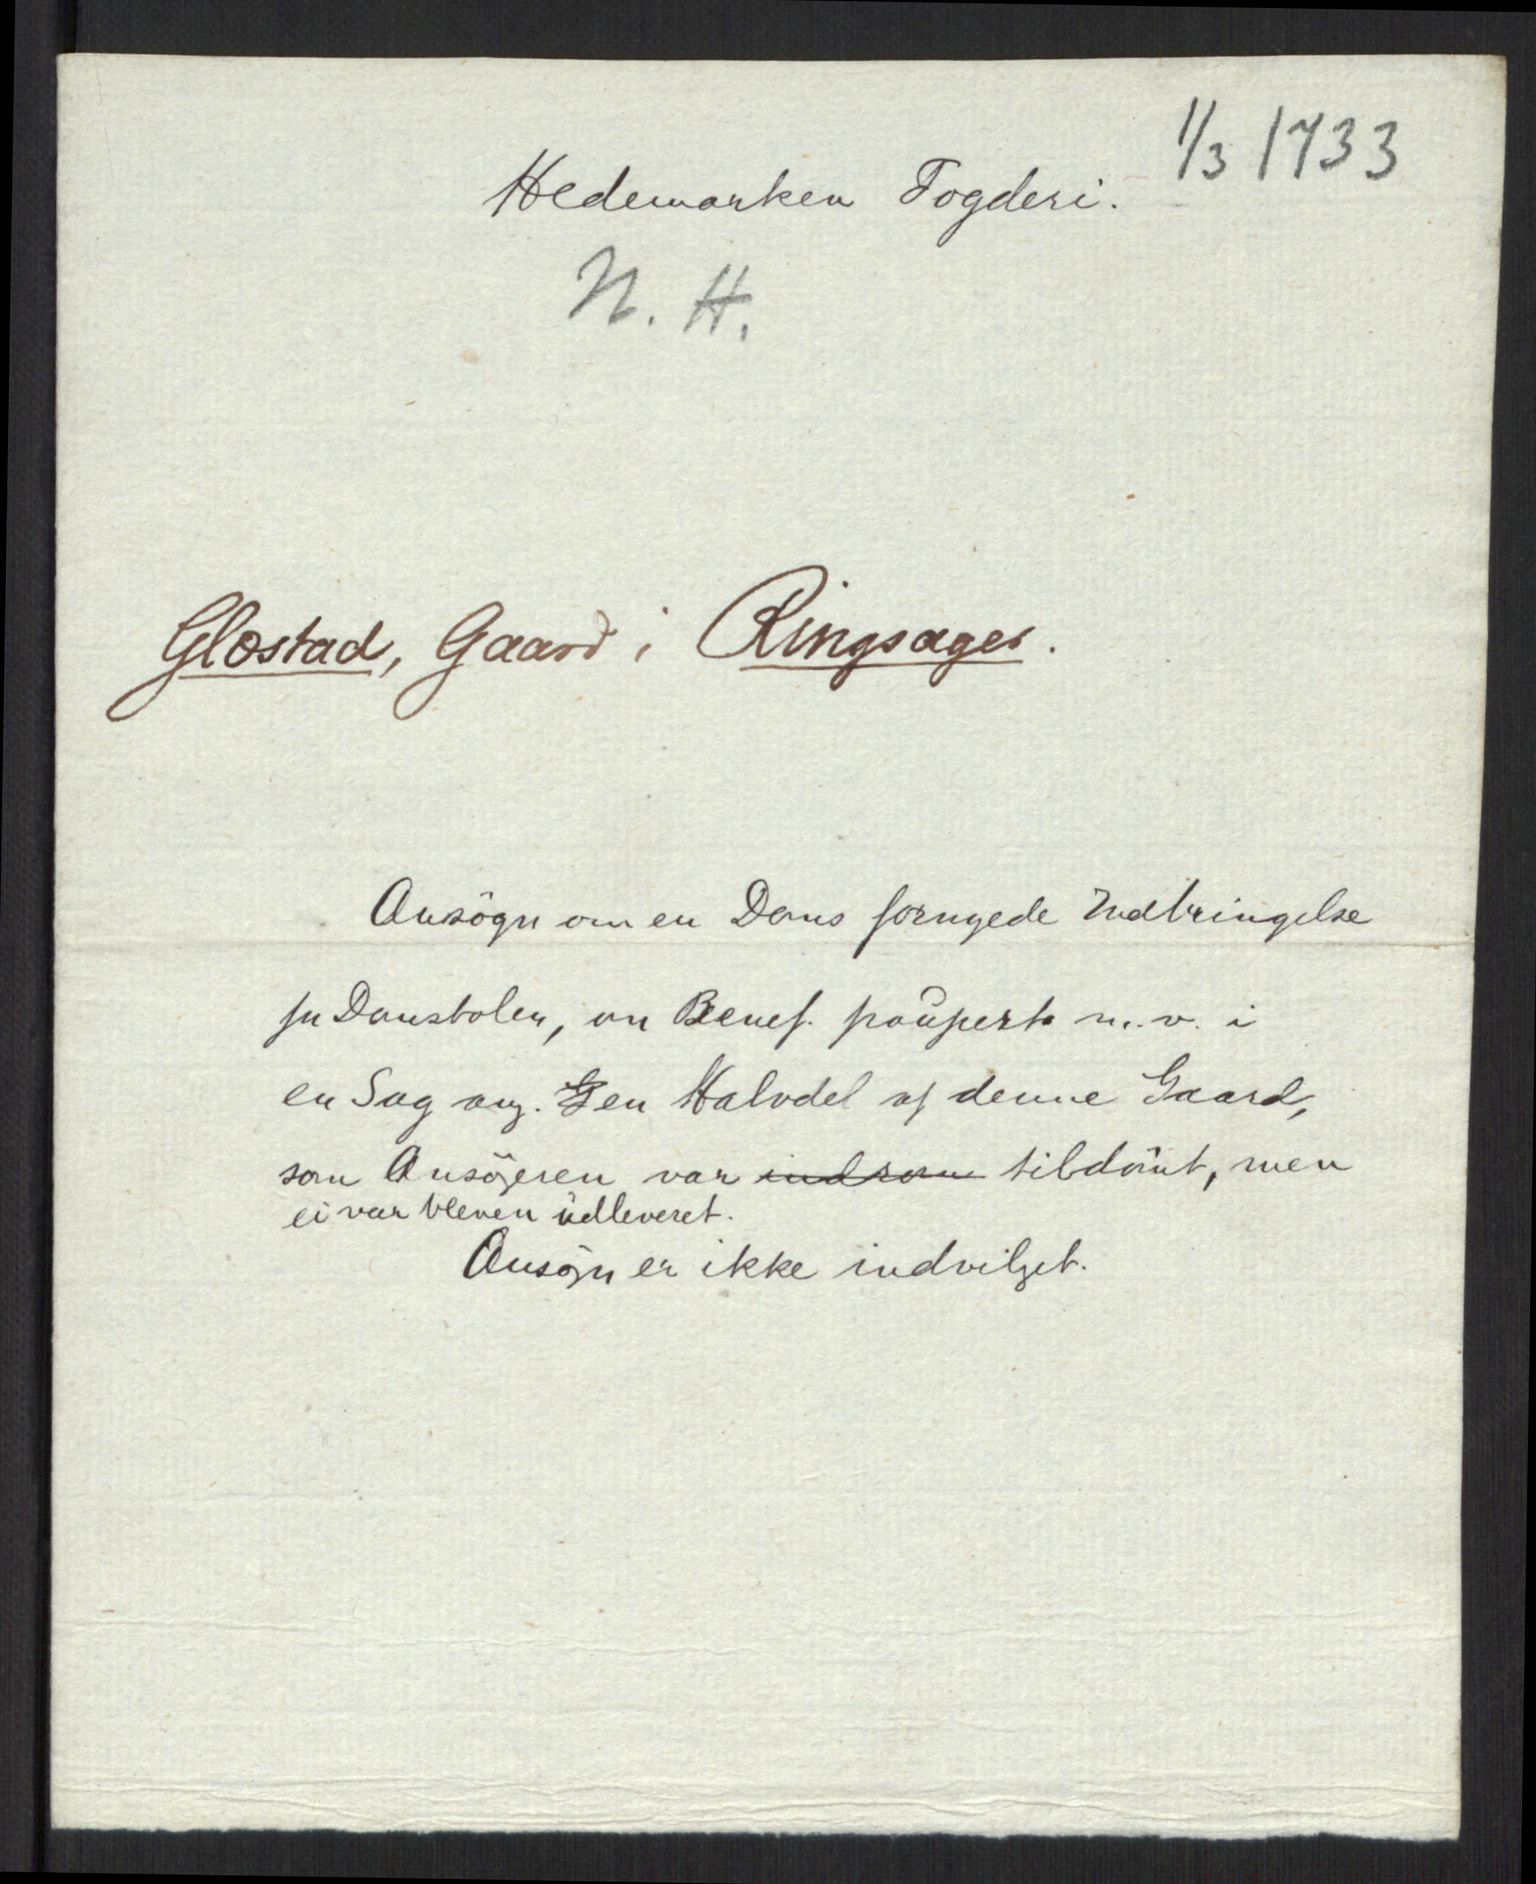 1/3 1733
Hedemarken Fogderi.
N. H.
Glostad, Gaard i Ringsager.
Ansögn om en Doms fornyede Indbringelse
fn Domstolen, om Benef. paupert m. v. i
en Sag ang. en Halvdel af denne Gaard,
som Ansögeren var indrom tildömt, men
ei var bleven udleveret.
Ansögn er ikke indvilget.